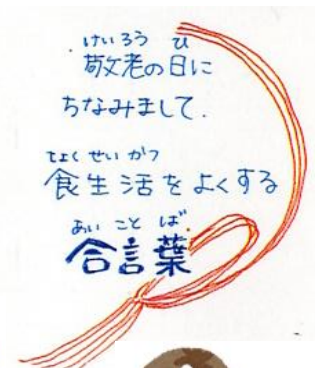 けいろう ひ
敬老の日に
ちなみまして.
しょく せい かつ
食生活をよくする
あい こと ば
合言葉